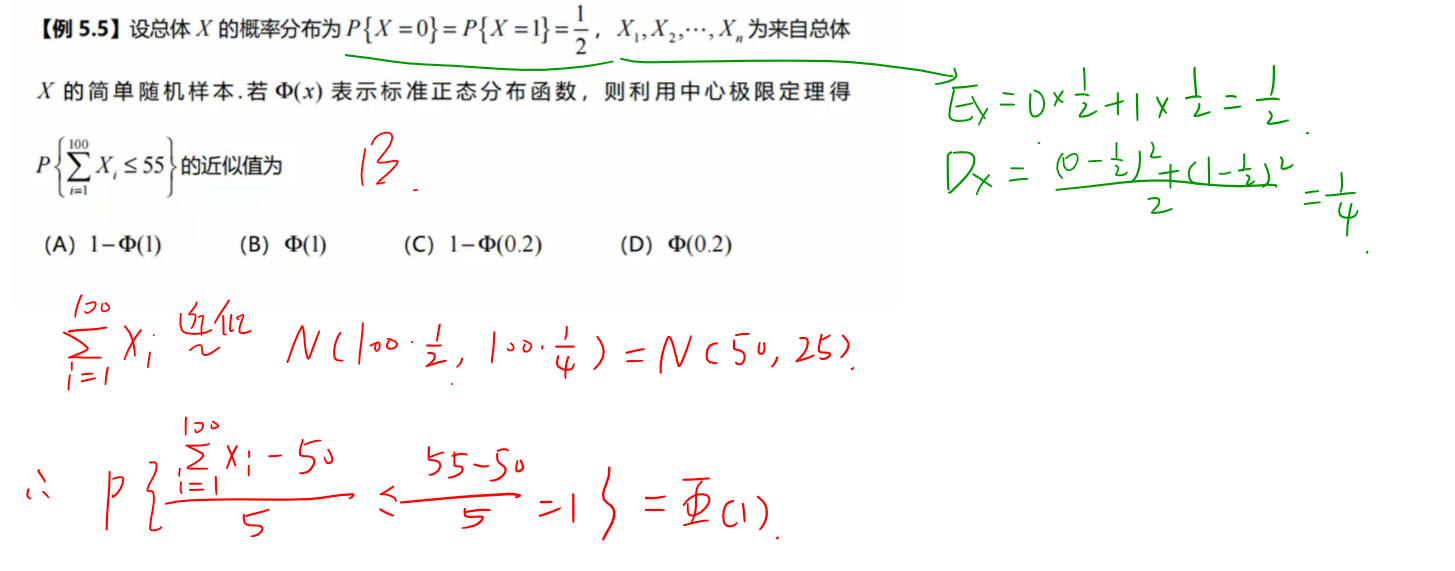 【例 5.5】设总体 X 的概率分布为 P{X=0}=P{X=1}=1/2，X₁,X₂,⋯,Xₙ 为来自总体
X 的简单随机样本.若 Φ(x) 表示标准正态分布函数，则利用中心极限定理得
P{∑_{i=1}^{100} Xᵢ ≤ 55} 的近似值为
B.
(A) 1−Φ(1) (B) Φ(1) (C) 1−Φ(0.2) (D) Φ(0.2)
Ex = 0×1/2+1×1/2 = 1/2.
Dx = ((0−1/2)²+(1−1/2)²)/2 = 1/4.
∑_{i=1}^{100} Xᵢ 近似~ N(100·1/2, 100·1/4) = N(50, 25).
∴ P{(∑_{i=1}^{100} Xᵢ −50)/5 ≤ (55−50)/5 =1} = Φ(1).